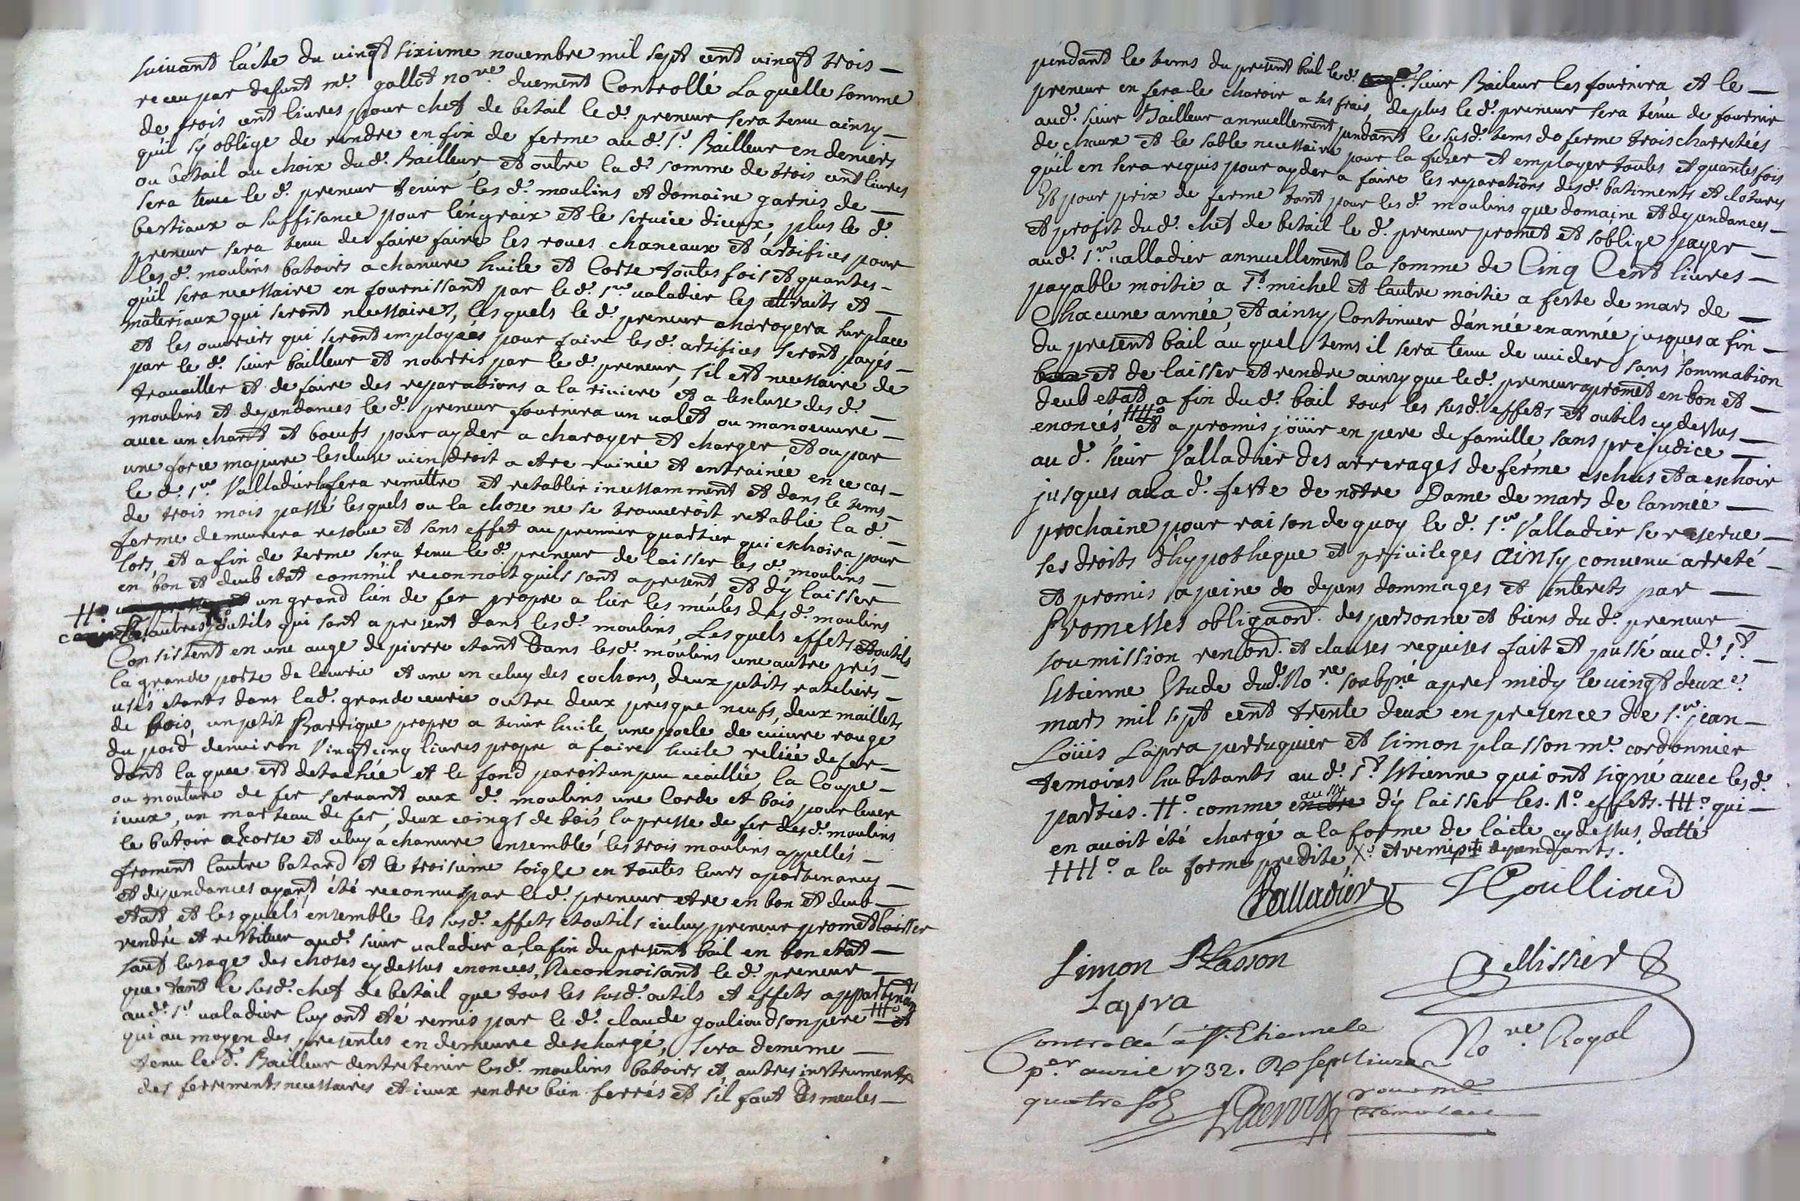 suivant lácte du vingt sixieme novembre mil sept cent vingt trois
receu par defunt me. gallot nore. duement Controllé La quelle somme
de trois cent livres pour chef de betail le d. preneur sera tenu ainsy
quil sy oblige de rendre en fin de ferme au d. sr. Bailleur en deniers
ou betail au choix du d. Bailleur, et outre la d. somme de trois cent livres
sera tenu le d. preneur tenir les d. moulins et domaine garnis de
bestiaux a suffisance pour léngraix et le service diceux, plus le d.
preneur sera tenu de faire faire les roues chaneaux et artifices pour
les d. moulins batoirs a chanvre huile et Corse toutes fois et quantes
quil sera necessaire en fournissant par le d. sr. valadier les attraits et
materiaux qui seront necessaires, lesquels le d. preneur charoyera sur place
et les ouvriers qui seront employés pour faire les d. artifices seront payés
par le d. sieur bailleur et nourris par le d. preneur, sil est necessaire de
travailler et de faire des reparations a la riviere et a lescluse des d.
moulins et dependances le d. preneur fournira un valet ou manoeuvre
avec un chart et boeufs pour ayder a charoyer et charger et ou par
une force majeure lescluse viendroit a etre ruinée et entrainée en ce cas
le d. sr. Valladier fera remettre et retablir incessamment et dans le tems
de trois mois passé lesquels ou la chose ne se trouveroit retablie la d.
ferme demeurera resolue et sans effet au premier quartier qui eschoira pour
lors, et a fin de terme sera tenu le d. preneur de laisser les d. moulins
en bon et deub etat comm'il reconnoit quils sont a present et dy laisser
Ho un grand lien de fer propre a lier les meules des d. moulins
autres outils qui sont a present dans les d. moulins, Lesquels effets et outils
Consistent en une auge de pierre etant dans les d. moulins une autre près
la grande porte de lecurie et une en celuy des cochons, deux petits rateliers
usés etants dans la d. grande ecurie outre deux presque neufs, deux maillets
de bois, un petit Barrique propre a tenir huile, une poele de cuivre rouge
du poid denviron vingt cinq livres propre a faire huile reliée de fer
dont la queue est detachée et le fond paroit un peu ecaillié la Coupe
ou mouture de fer servant aux d. moulins une Corde et bois pour lever
iceux, un marteau de fer, deux coings de bois la presse de fer des d. moulins
le batoir a Corse et celuy a chanvre ensemble les trois moulins appellés
froment lautre batard et le troisieme soigle en toutes leurs apartenances
et dependances ayant été reconnus par le d. preneur etre en bon et deub
etat et lesquels ensemble les susd. effets et outils iceluy preneur promet laisser
rendre et restituer aud. sieur valadier a la fin du present bail en bon etat
sauf lusage des choses cy dessus enoncées, Reconnoisant le d. preneur
que tant le susd. chef de betail que tous les susd. outils et effets appartenants
aud. sr. valadier luy ont eté remis par le d. claude goulioud son pere HHo et
qui au moyen des presentes en demeure deschargé, sera de meme
tenu le d. Bailleur dentretenir les d. moulins batoirs et autres instruments
des ferrements necessaires et iceux rendre bien ferrés et s'il faut des meules
pendant le tems du present bail le d. sieur Bailleur les fournira et le
preneur en fera le charoir a ses frais, de plus le d. preneur sera tenu de fournir
aud. sieur Bailleur annuellement pendant le susd. tems de ferme trois charretées
de chaux et le sable necessaire pour la fuzer et employer toutes et quantes fois
quil en sera requis pour ayder a faire les reparations des d. batiments et clotures
Et pour prix de ferme tant pour les d. moulins que domaine et dependances
et profit du d. chef de betail le d. preneur promet et soblige payer
aud. sr. valladier annuellement la somme de Cinq Cent livres
payable moitie a st. michel et lautre moitie a feste de mars de
Chacune année et ainsy Continuer dánnée en année jusques a fin
du present bail auquel tems il sera tenu de vuider sans sommation
et de laisser et rendre ainsy que le d. preneur a promet en bon et
deub etat a fin du d. bail tous les susd. effets et outils cy dessus
enoncés HHHo et a promis jöüir en pere de famille, sans prejudice
au d. sieur Valladier des arrerages de ferme eschus et a eschoir
jusques a la d. feste de nôtre Dame de mars de lannée
prochaine pour raison de quoy le d. sr. Valladier se reserve
ses droits dhypotheque et privileges ainsy convenu arreté
et promis a peine de depens dommages et interets par
Promesses obligaon. des personne et biens du d. preneur
soumission renon. et clauses requises fait et passé au d. st.
Etienne Etude dud. Nore soubsné apres midy le vingt deuxe.
mars mil sept cent trente deux en presence de sr. jean
Loüis Lapra perruquier et simon plasson me. cordonnier
temoins habitants au d. st. Etienne qui ont signé avec les d.
parties. Ho comme aussy dy laisser les. No. effets. HHo qui
en avoit été chargé a la forme de lácte cy dessus datté
HHHo a la forme predite
Valladier HGoullioud
Simon Plasson
Pellissier
Lapra
Nore Royal
Controllé a St. Etienne le
per avril 1732. R sept livres
quatre sols